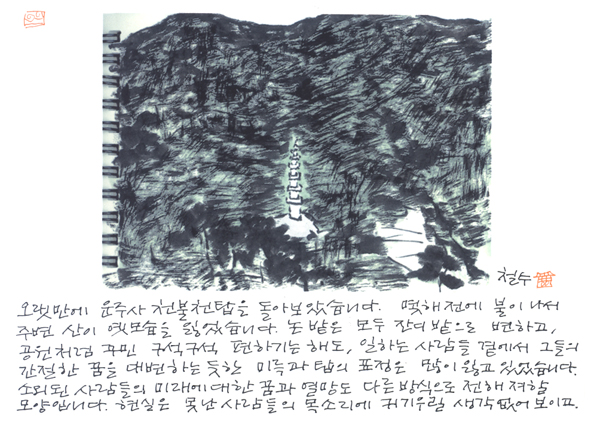 철수
오랫만에 운주사 천불천탑을 돌아보았습니다. 몇해전에 불이 나서
주변 산이 옛모습을 잃었습니다. 논밭은 모두 잔디밭으로 변하고,
공원처럼 꾸민 구석구석 편하기는 해도, 일하는 사람들 곁에서 그들의
간절한 꿈을 대변하는 듯한 미륵과 탑의 표정은 많이 잃고 있었습니다.
소외된 사람들의 미래에 대한 꿈과 열망도 다른 방식으로 전해져야할
모양입니다. 현실은 못난 사람들의 목소리에 귀기우릴 생각 없어 보이고.